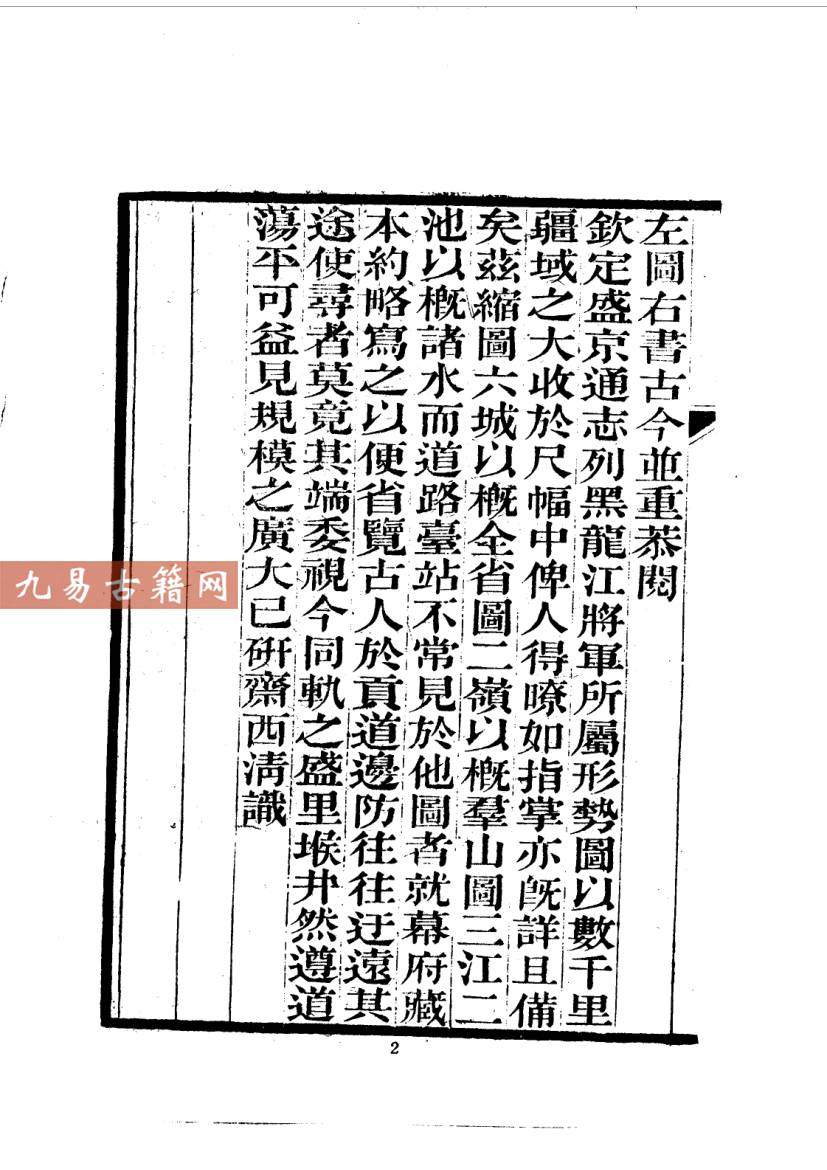 左圖右書古今並重恭閱
欽定盛京通志列黑龍江將軍所屬形勢圖以數千里
疆域之大收於尺幅中俾人得暸如指掌亦旣詳且備
矣茲縮圖六城以槪全省圖二嶺以槪羣山圖三江二
池以槪諸水而道路臺站不常見於他圖者就幕府藏
本約略寫之以便省覽古人於貢道邊防往往迂遠其
途使尋者莫竟其端委視今同軌之盛里堠井然遵道
蕩平可益見規模之廣大已研齋西淸識
九易古籍网
2